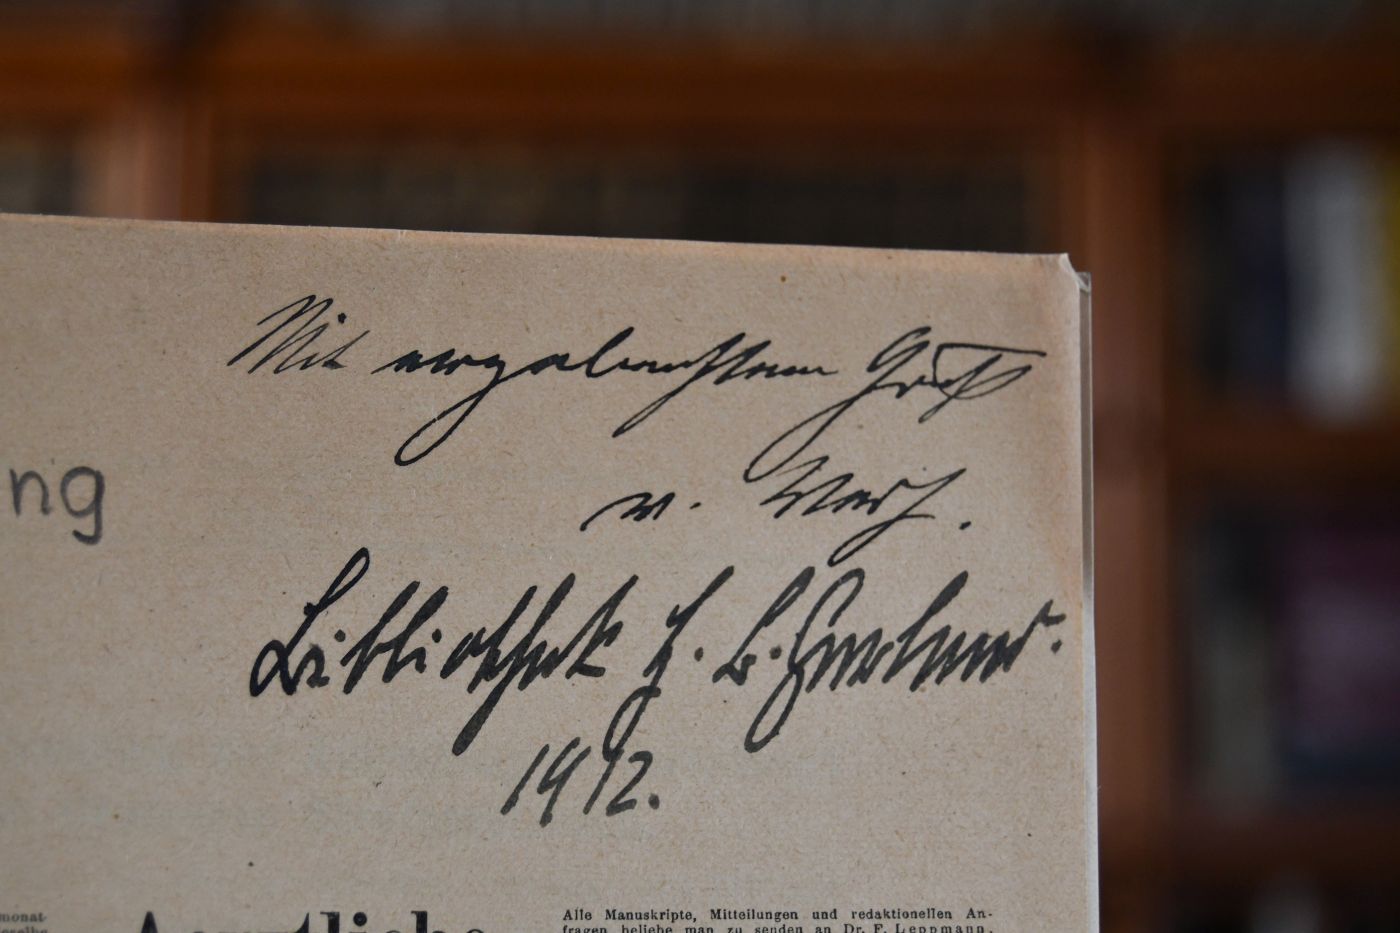 Mit ergebenstem Gruß
v. Verf.
ng
Bibliothek H. B.
1912.
monat-
Aerztliche
Alle Manuskripte, Mitteilungen und redaktionellen An-
fragen beliebe man zu senden an Dr. F. Leppmann,